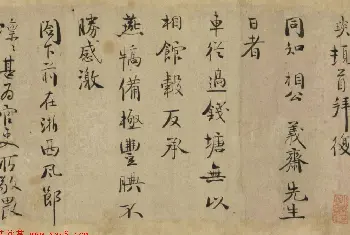 頓首拜復
同知相公義齋先生
日者
車從過錢塘無以
相館穀反承
燕犒備極豐腆不
勝感激
閣下前在浙西風節
凜凜甚為官吏所敬畏